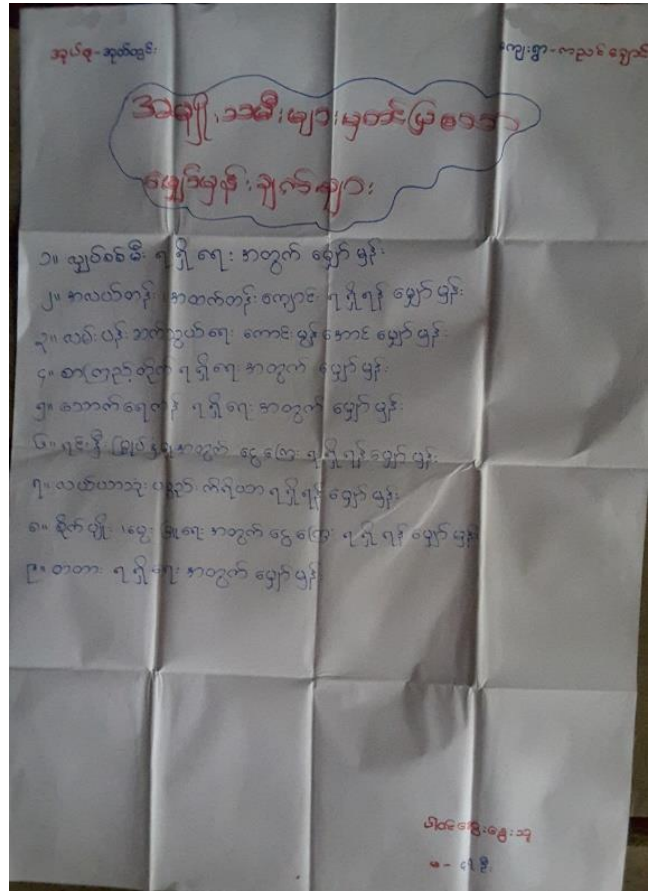 အုပ်စု-အုတ်တွင်း
ကျေးရွာ-ကညင်ချောင်
အမျိုးသမီးများမှတင်ပြသော
မျှော်မှန်းချက်များ
၁။ လျှပ်စစ်မီး ရရှိရေး အတွက် မျှော်မှန်း
၂။ အလယ်တန်း၊ အထက်တန်းကျောင်း ရရှိရန် မျှော်မှန်း
၃။ လမ်းပန်း ဆက်သွယ်ရေး ကောင်းမွန်အောင် မျှော်မှန်း
၄။ စာကြည့်တိုက် ရရှိရေး အတွက် မျှော်မှန်း
၅။ သောက်ရေကန် ရရှိရေး အတွက် မျှော်မှန်း
၆။ ရင်းနှီးမြှုပ်နှံရေးအတွက် ငွေကြေး ရရှိရန် မျှော်မှန်း
၇။ လယ်ယာသုံး ပစ္စည်း ကိရိယာ ရရှိရန် မျှော်မှန်း
၈။ စိုက်ပျိုး၊ မွေးမြူရေး အတွက် ငွေကြေး ရရှိရန် မျှော်မှန်း
၉။ တံတား ရရှိရေး အတွက် မျှော်မှန်း
ပါဝင်ဆွေးနွေးသူ